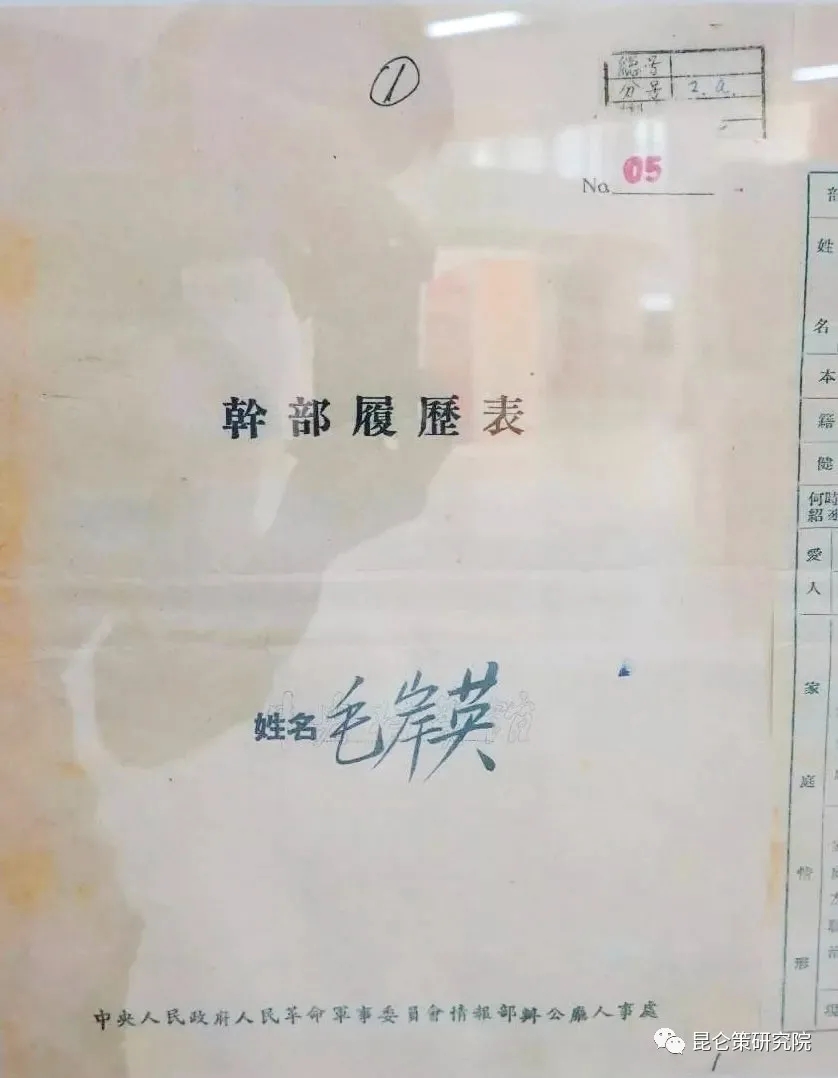 ①
總号
分号 2.a.
No. 05
幹部履歷表
姓名 毛岸英
中央人民政府人民革命軍事委員會情報部辦公廳人事處
姓名
本
籍
健
何時
紹
愛人
家庭情形
昆仑策研究院